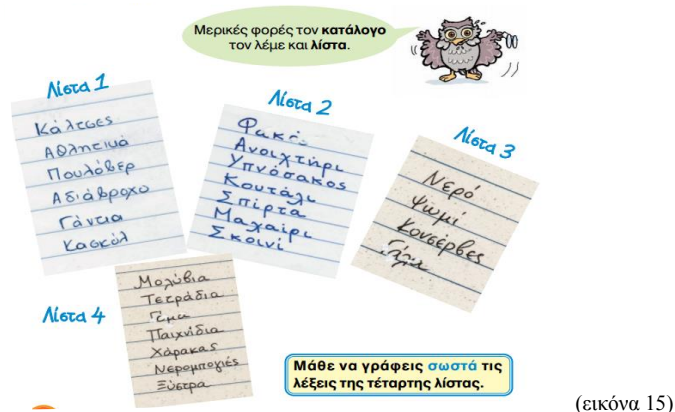 Μερικές φορές τον κατάλογο
τον λέμε και λίστα.
Λίστα 1
Κάλτσες
Αθλητικά
Πουλόβερ
Αδιάβροχο
Γάντια
Κασκόλ
Λίστα 2
Φακό
Ανοιχτήρι
Υπνόσακος
Κουτάλι
Σπίρτα
Μαχαίρι
Σκοινί
Λίστα 3
Νερό
Ψωμί
Κονσέρβες
Γάλα
Λίστα 4
Μολύβια
Τετράδια
Παιχνίδια
Χάρακας
Νερομπογιές
Ξύστρα
Μάθε να γράφεις σωστά τις
λέξεις της τέταρτης λίστας.
(εικόνα 15)